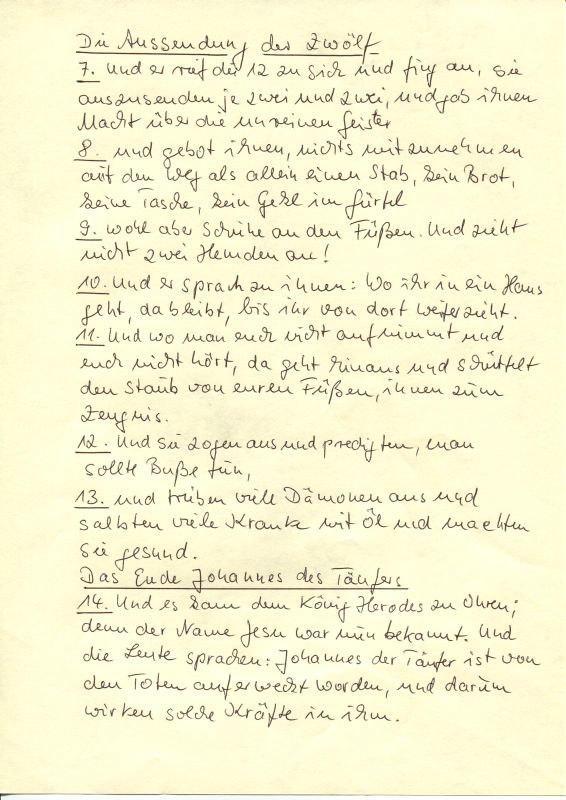 Die Aussendung der Zwölf
7. Und er rief die 12 zu sich und fing an, sie
auszusenden je zwei und zwei, und gab ihnen
Macht über die unreinen Geister
8. und gebot ihnen, nichts mitzunehmen
auf den Weg als allein einen Stab, kein Brot,
keine Tasche, kein Geld im Gürtel
9. wohl aber Schuhe an den Füßen. Und zieht
nicht zwei Hemden an!
10. Und er sprach zu ihnen: Wo ihr in ein Haus
geht, da bleibt, bis ihr von dort weiterzieht.
11. Und wo man euch nicht aufnimmt und
euch nicht hört, da geht hinaus und schüttelt
den Staub von euren Füßen, ihnen zum
Zeugnis.
12. Und sie zogen aus und predigten, man
sollte Buße tun,
13. und trieben viele Dämonen aus und
salbten viele Kranke mit Öl und machten
sie gesund.
Das Ende Johannes des Täufers
14. Und es kam dem König Herodes zu Ohren;
denn der Name Jesu war nun bekannt. Und
die Leute sprachen: Johannes der Täufer ist von
den Toten auferweckt worden, und darum
wirken solche Kräfte in ihm.